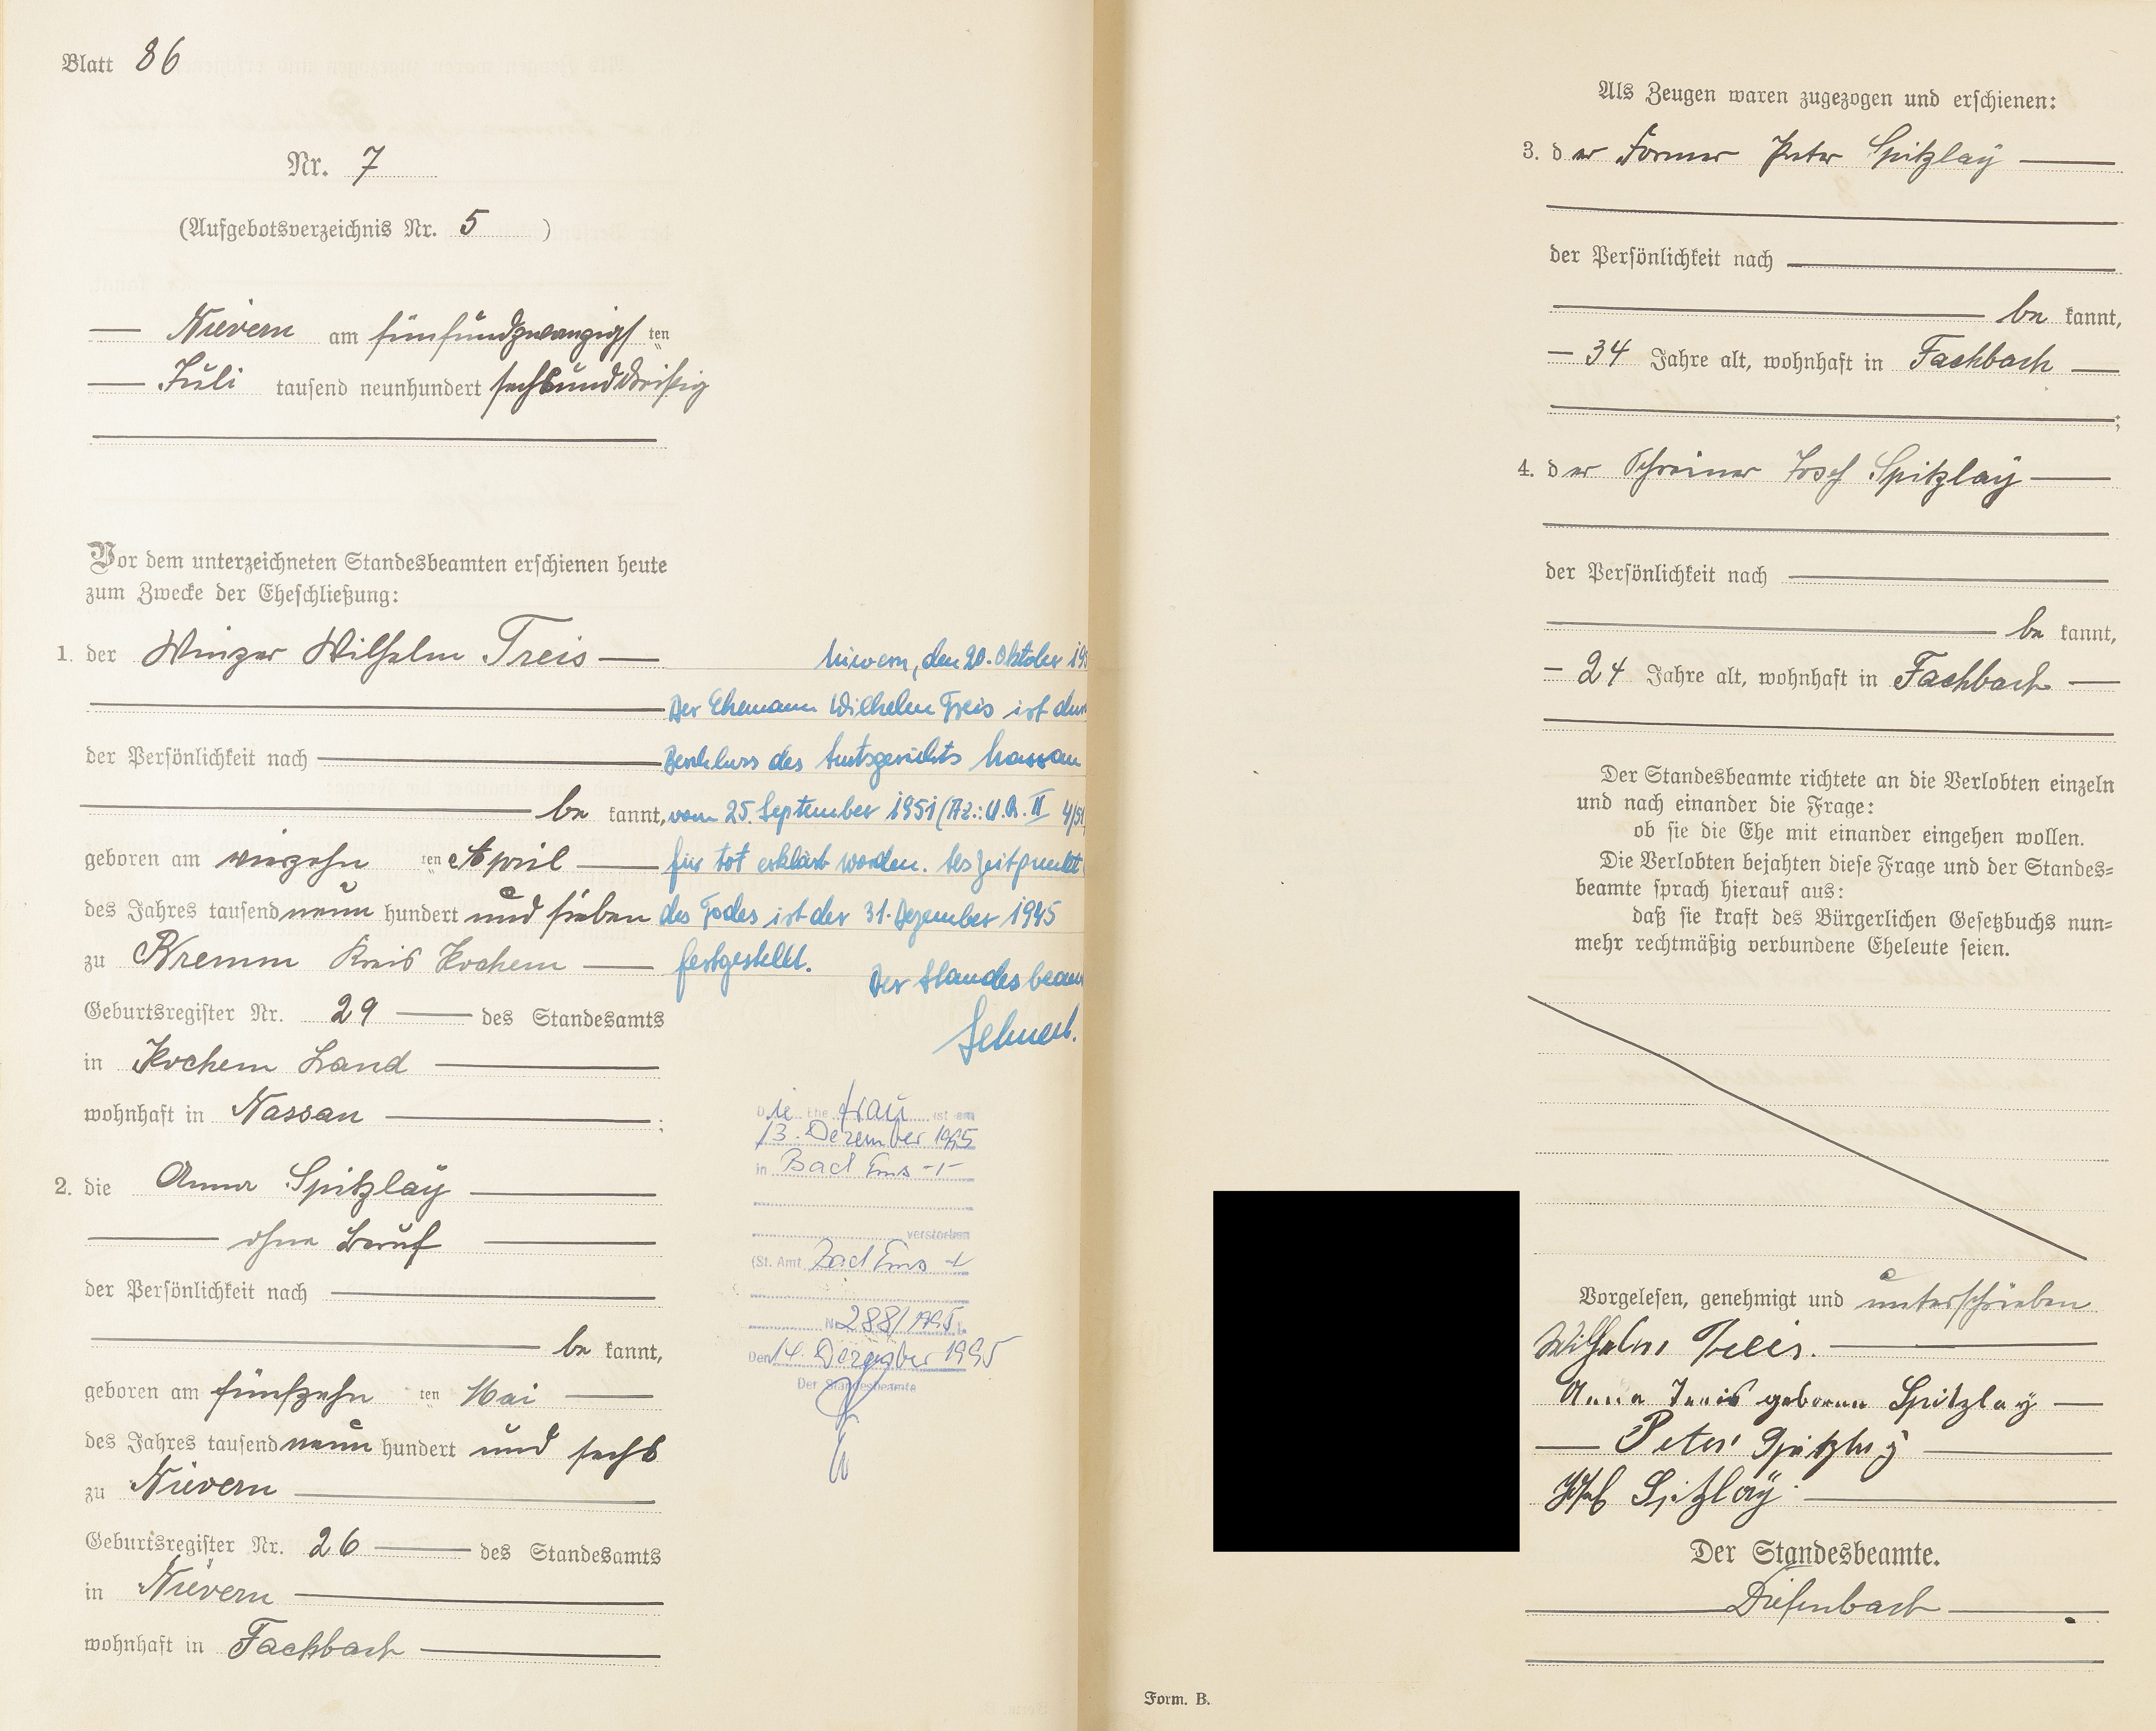 Blatt 86
Nr. 7
(Aufgebotsverzeichnis Nr. 5 )
Nievern am fünfundzwanzigsten
Juli tausend neunhundert sechsunddreißig
Vor dem unterzeichneten Standesbeamten erschienen heute
zum Zwecke der Eheschließung:
1. der Winzer Wilhelm Treis
der Persönlichkeit nach
be kannt,
geboren am vierzehn ten April
des Jahres tausend neun hundert und sieben
zu Bremm Kreis Kochem
Geburtsregister Nr. 29 des Standesamts
in Kochem Land
wohnhaft in Nassau ;
2. die Anna Spitzlay
ohne Beruf
der Persönlichkeit nach
be kannt,
geboren am fünfzehn ten Mai
des Jahres tausend neun hundert und sechs
zu Nievern
Geburtsregister Nr. 26 des Standesamts
in Nievern
wohnhaft in Fachbach
Nievern, den 20. Oktober 195
Der Ehemann Wilhelm Treis ist durch
Beschluss des Amtsgerichts Nassau
vom 25. September 1951 (Az.: U.R. II 4/51
für tot erklärt worden. Als Zeitpunkt
des Todes ist der 31. Dezember 1945
festgestellt.
Der Standesbeam
Die Ehefrau ist am
13. Dezember 1995
in Bad Ems
verstorben
(St. Amt Bad Ems
Nr. 288/1995
Den 14. Dezember 1995
Der Standesbeamte
Als Zeugen waren zugezogen und erschienen:
3. der Former Peter Spitzlay
der Persönlichkeit nach
be kannt,
34 Jahre alt, wohnhaft in Fachbach
;
4. der Schreiner Josef Spitzlay
der Persönlichkeit nach
be kannt,
24 Jahre alt, wohnhaft in Fachbach
Der Standesbeamte richtete an die Verlobten einzeln
und nach einander die Frage:
ob sie die Ehe mit einander eingehen wollen.
Die Verlobten bejahten diese Frage und der Standes=
beamte sprach hierauf aus:
daß sie kraft des Bürgerlichen Gesetzbuchs nun=
mehr rechtmäßig verbundene Eheleute seien.
Vorgelesen, genehmigt und unterschrieben
Wilhelm Treis.
Anna Treis geborene Spitzlay
Peter Spitzlay
Josef Spitzlay
Der Standesbeamte.
Diefenbach
Form. B.